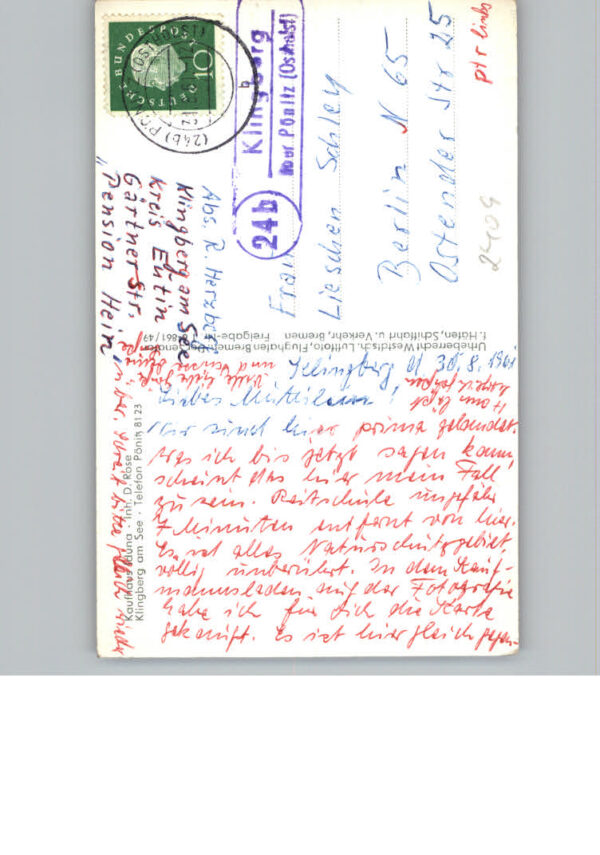 DEUTSCHE BUNDESPOST
10
(24b)
24b
Klingberg
über Pönitz (Ostholst)
Abs. R. Herzberg
Klingberg am See
Kreis Eutin
Gärtner Str.
"Pension Hein"
Frau
Lieschen Schley
Berlin N 65
Ostender Str 25
ptr links
2409
Urheberrecht Westdtsch. Luftfoto, Flughafen Bremen
f. Häfen, Schiffahrt u. Verkehr, Bremen Freigabe-Nr.
Kaufhaus
Inh. D. Röse
Klingberg am See · Telefon Pönitz 8123
Klingberg 30.8.1961
Liebes Muttilein!
Wir sind hier prima gelandet.
Was ich bis jetzt sagen kann,
scheint das hier mein Fall
zu sein. Reitschule ungefähr
7 Minuten entfernt von hier.
Es ist alles Naturschutzgebiet,
völlig unberührt. In dem Kauf-
mannsladen auf der Fotografie
habe ich für dich die Karte
gekauft. Es ist hier gleich gegen-
über.